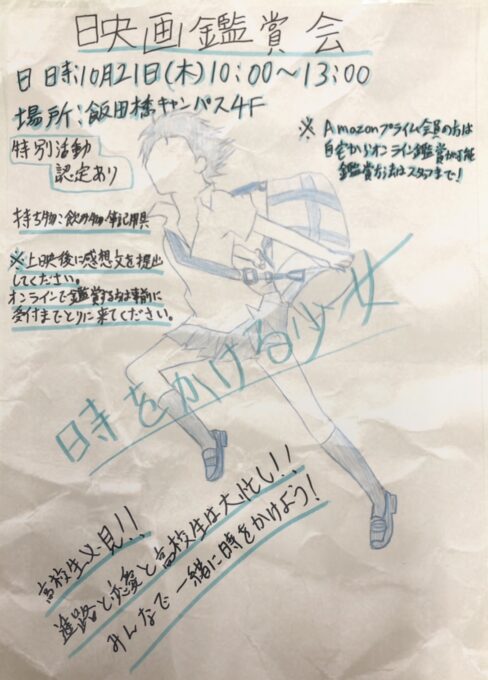 映画鑑賞会
日時:10月21日(木)10:00〜13:00
場所:飯田橋キャンパス4F
※Amazonプライム会員の方は
自宅からオンライン鑑賞が可能
鑑賞方法はスタッフまで!
特別活動
認定あり
持ち物:飲み物・筆記用具
※上映後に感想文を提出
してください。
オンラインで鑑賞する方は事前に
受付までとりに来てください。
時をかける少女
高校生必見!!
進路と恋愛と高校生は大忙し!!
みんなで一緒に時をかけよう!